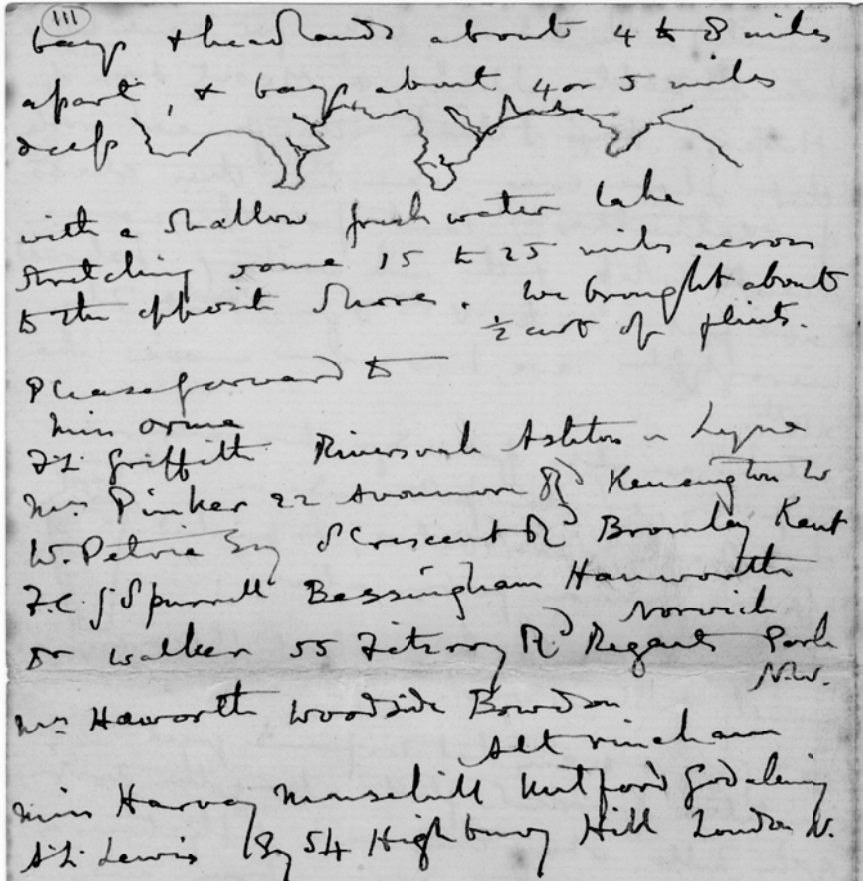 111
bays & headlands about 4 to 8 miles
apart, & bays about 4 or 5 miles
deep
with a shallow fresh water lake
stretching some 15 to 25 miles across
to the opposite shore. We brought about
½ cwt of flints.
Please forward to
Miss Orme
F.L. Griffith Riversvale Ashton u Lyne
Mrs Pinker 22 Avonmore Rd Kensington W
W. Petrie Esq 8 Crescent Rd Bromley Kent
F.C.J. Spurrell Bessingham Hanworth
Norwich
Dr Walker 55 Fitzroy Rd Regents Park
N.W.
Mrs Haworth Woodside Bowdon
Altrincham
Miss Harvey Mousehill Milford Godalming
A.L. Lewis Esq 54 Highbury Hill London N.